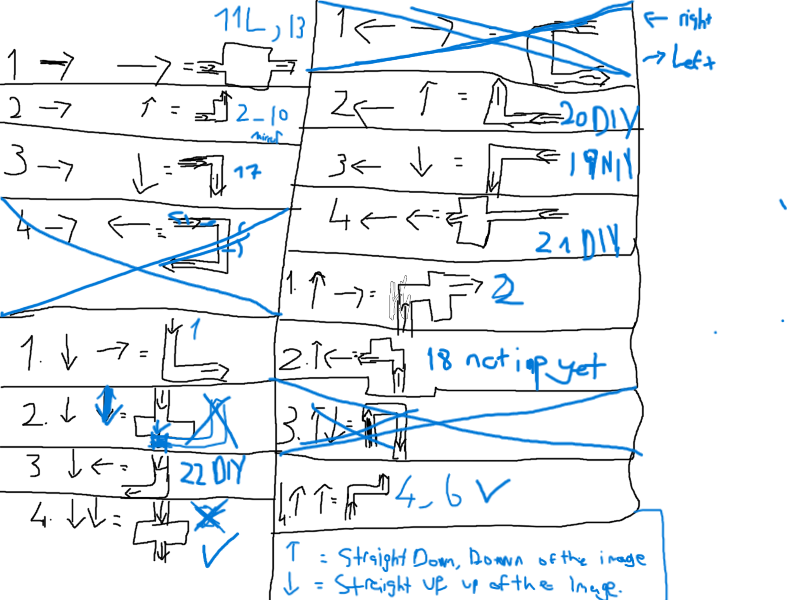 11L, 13
1 → → =
2 → ↑ = 2_10
3 → ↓ = 17
4 → ← =
1. ↓ → = 1
2. ↓ ↕ =
3 ↓ ← = 22 DIY
4. ↓ ↓ =
1 ← → -
← right
→ Left
2 ← ↑ = 20 DIY
3 ← ↓ =
4 ← ← = 21 DIY
1. ↑ → = 2
2. ↑ ← = 18 not imp yet
3. ↑ ↓ =
↑ ↑ = 4_6 ✓
↑ = Straight Down, Down of the image
↓ = Streight up up of the Image.